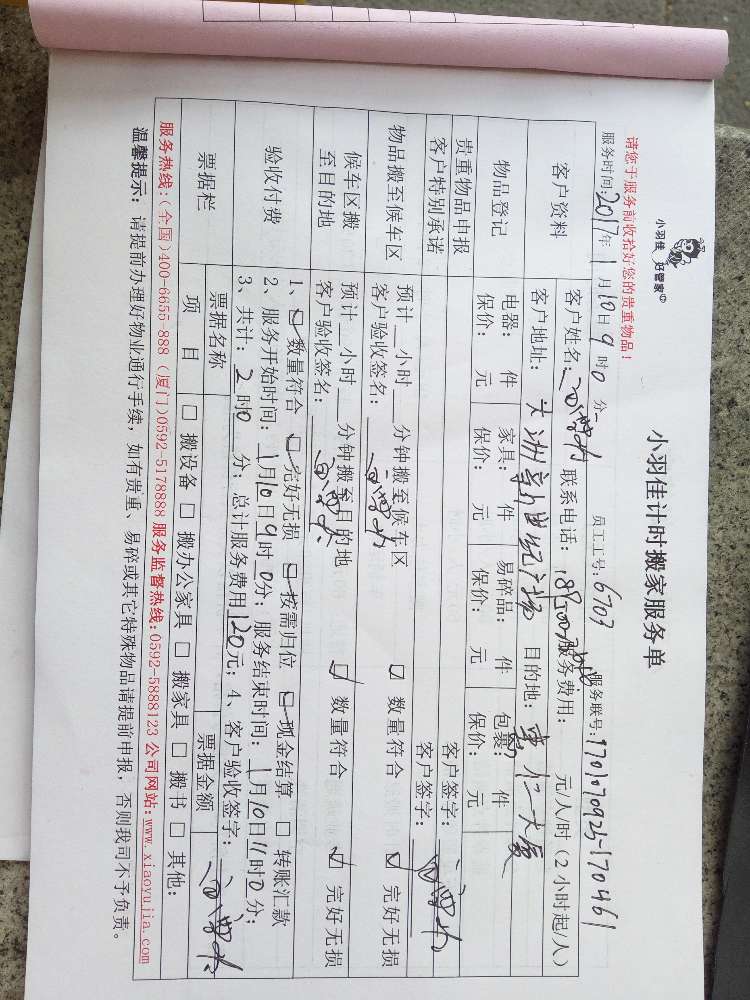 小羽佳 好管家
小羽佳计时搬家服务单
请您于服务前收拾好您的贵重物品!
服务时间: 2017年 1月10日9时0分 员工工号: 6703 服务联号: 1701070925170461
客户资料 客户姓名: 联系电话: 服务费用: 元/人/时 (2小时起/人)
客户地址: 目的地: 大厦
物品登记 电器: 件 家具: 件 易碎品: 件 包裹: 件
保价: 元 保价: 元 保价: 元 保价: 元
贵重物品申报 客户签字:
客户特别承诺 客户签字:
物品搬至候车区 预计__小时__分钟搬至候车区 ☑ 数量符合 ☑ 完好无损
客户验收签名:
候车区搬至目的地 预计__小时__分钟搬至目的地 ☑ 数量符合 ☑ 完好无损
客户验收签名:
验收付费 1、☑ 数量符合 ☑ 完好无损 ☑ 按需归位 ☑ 现金结算 □ 转账汇款
2、服务开始时间: 1月10日9时0分; 服务结束时间: 1月10日11时0分;
3、共计: 2时0分; 总计服务费用120元; 4、客户验收签字:
票据栏 票据名称 票据金额
项目 □ 搬设备 □ 搬办公家具 □ 搬家具 □ 搬书 □ 其他:
服务热线: (全国)400-6655-888 (厦门)0592-5178888 服务监督热线: 0592-5888123 公司网站: www.xiaoyujia.com
温馨提示: 请提前办理好物业通行手续, 如有贵重、易碎或其它特殊物品请提前申报, 否则我司不予负责。